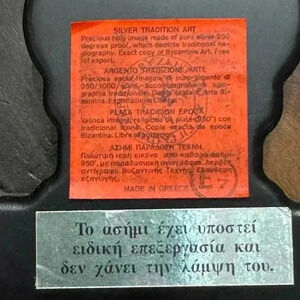 SILVER TRADITION ART
Precious holy image made of pure silver 950
degrees proof, which depicts traditional ha-
giography. Exact copy of Byzantine Art. Free
for export.
ARGENTO TRADIZIONE ARTE
Preciosa sacra imagine di puro argento di
950/1000 gradi, accompagnata di
tradizionale. Esatta copia Arte Bi-
zantina. Esportazione Libera.
PLATA TRADICION EPOCA
Valiosa imagen religiosa de plata (950°) con
tradicional icono. Copia exacta de época
Bizantina. Libre
ΑΣΗΜΙ ΠΑΡΑΔΟΣΗ ΤΕΧΝΗ
Πολύτιμη ιερή εικόνα από καθαρό ασήμι
950°, με παραδοσιακή αγιογραφία. Ακριβές
αντίγραφο Βυζαντινής Τέχνης. Ελευθέρας
εξαγωγής.
MADE IN GREECE
Το ασήμι έχει υποστεί
ειδική επεξεργασία και
δεν χάνει την λάμψη του.